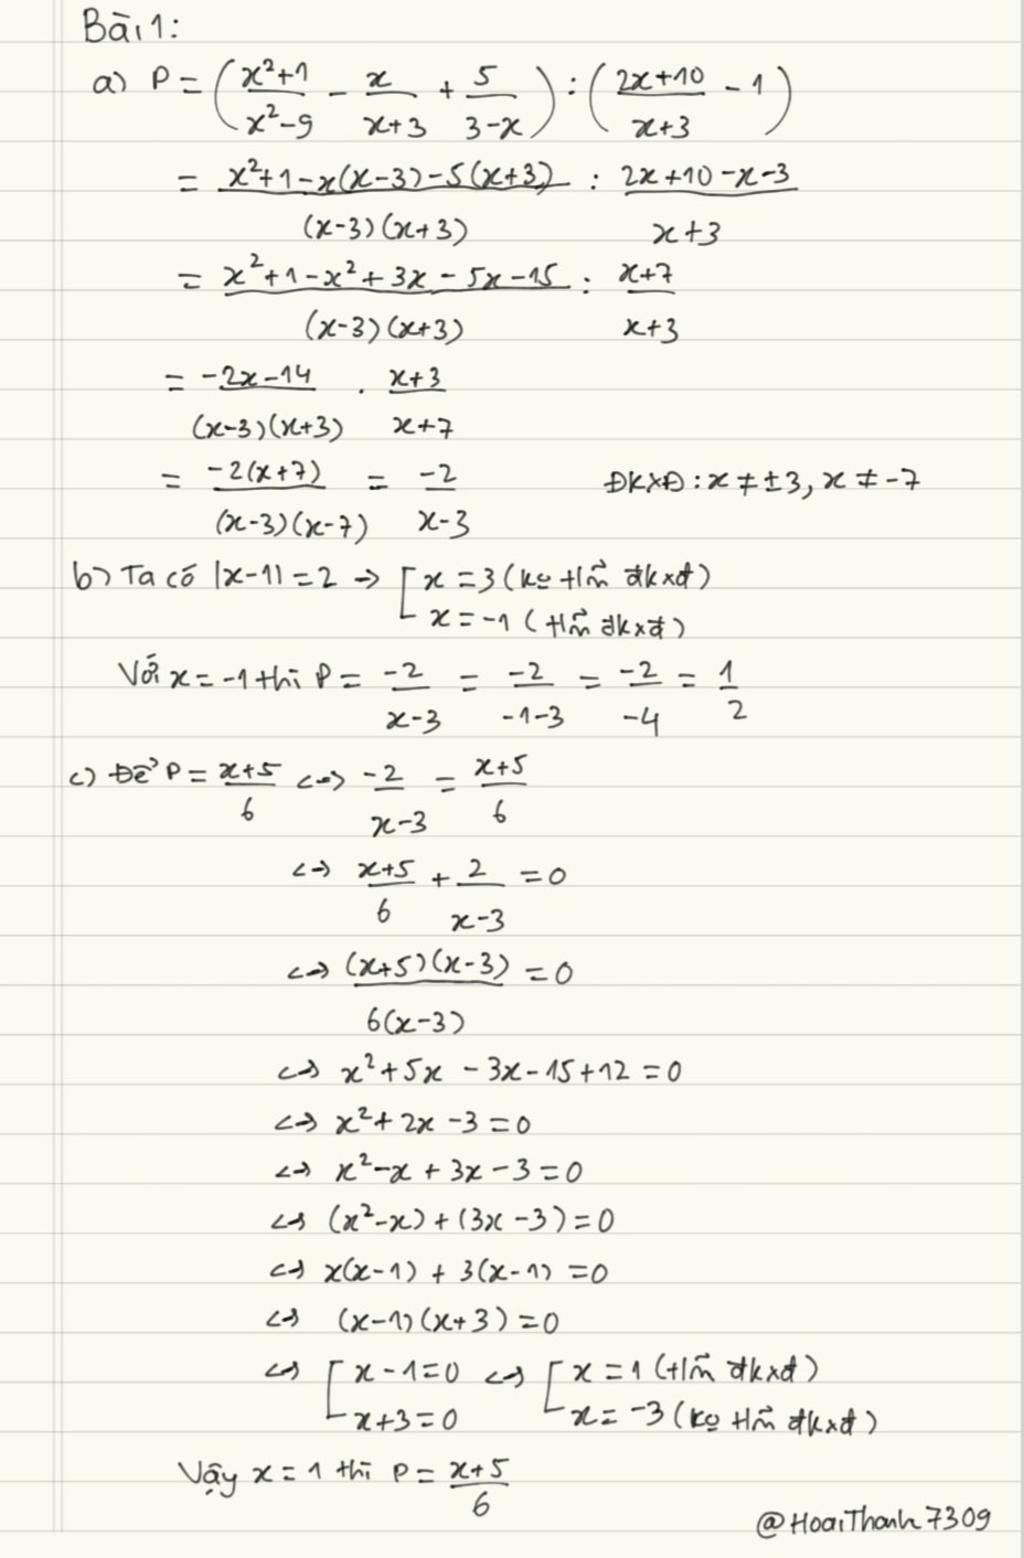 Bài 1:
a) P = (x²+1/x²-9 - x/x+3 + 5/3-x) : (2x+10/x+3 - 1)
= x²+1-x(x-3)-5(x+3)/(x-3)(x+3) : 2x+10-x-3/x+3
= x²+1-x²+3x-5x-15/(x-3)(x+3) : x+7/x+3
= -2x-14/(x-3)(x+3) . x+3/x+7
= -2(x+7)/(x-3)(x-7) = -2/x-3 ĐKXĐ: x ≠ ±3, x ≠ -7
b) Ta có |x-1| = 2 → [ x = 3 (ko t/m đkxđ)
x = -1 (t/m đkxđ)
Với x = -1 thì P = -2/x-3 = -2/-1-3 = -2/-4 = 1/2
c) Để P = x+5/6 <=> -2/x-3 = x+5/6
<=> x+5/6 + 2/x-3 = 0
<=> (x+5)(x-3)/6(x-3) = 0
<=> x²+5x-3x-15+12 = 0
<=> x²+2x-3 = 0
<=> x²-x+3x-3 = 0
<=> (x²-x)+(3x-3) = 0
<=> x(x-1)+3(x-1) = 0
<=> (x-1)(x+3) = 0
<=> [ x-1=0 <=> [ x = 1 (t/m đkxđ)
x+3=0 x = -3 (ko t/m đkxđ)
Vậy x = 1 thì P = x+5/6
@HoaiThanh7309